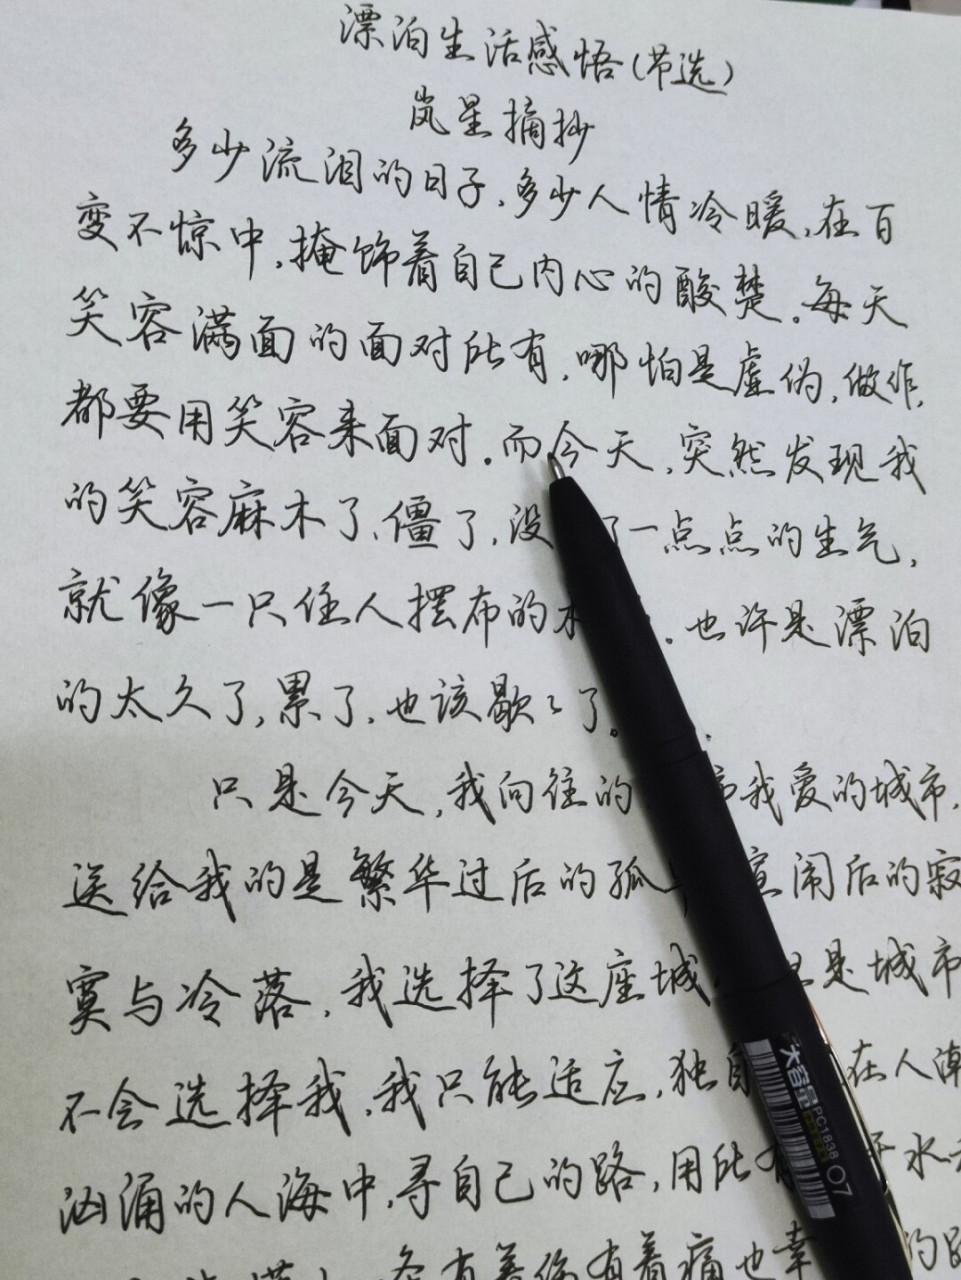 漂泊生活感悟(节选)
岚星摘抄
多少流泪的日子,多少人情冷暖,在百
变不惊中,掩饰着自己内心的酸楚。每天
笑容满面的面对所有,哪怕是虚伪,做作,
都要用笑容来面对。而今天,突然发现我
的笑容麻木了、僵了,没 了一点点的生气,
就像一只任人摆布的木 。也许是漂泊
的太久了,累了,也该歇々了。
只是今天,我向往的 市我爱的城市,
送给我的是繁华过后的孤 喧闹后的寂
寞与冷落,我选择了这座城 是城市
不会选择我,我只能适应,独自 在人潮
汹涌的人海中,寻自己的路,用所有 水
有着伤有着痛也幸 的
大容量
PC1838
07